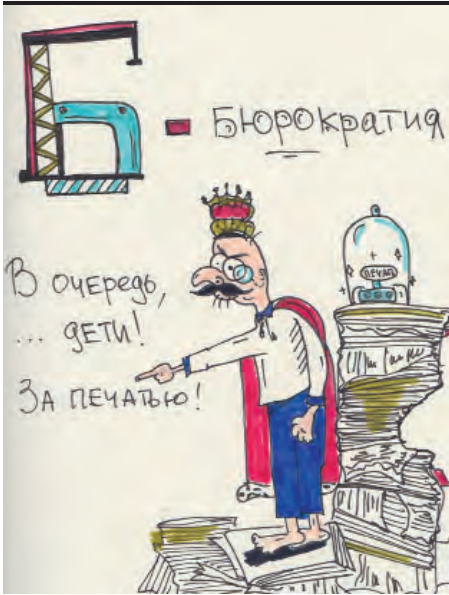 Б - Бюрократия
В очередь,
... дети!
За печатью!
ПЕЧАТЬ